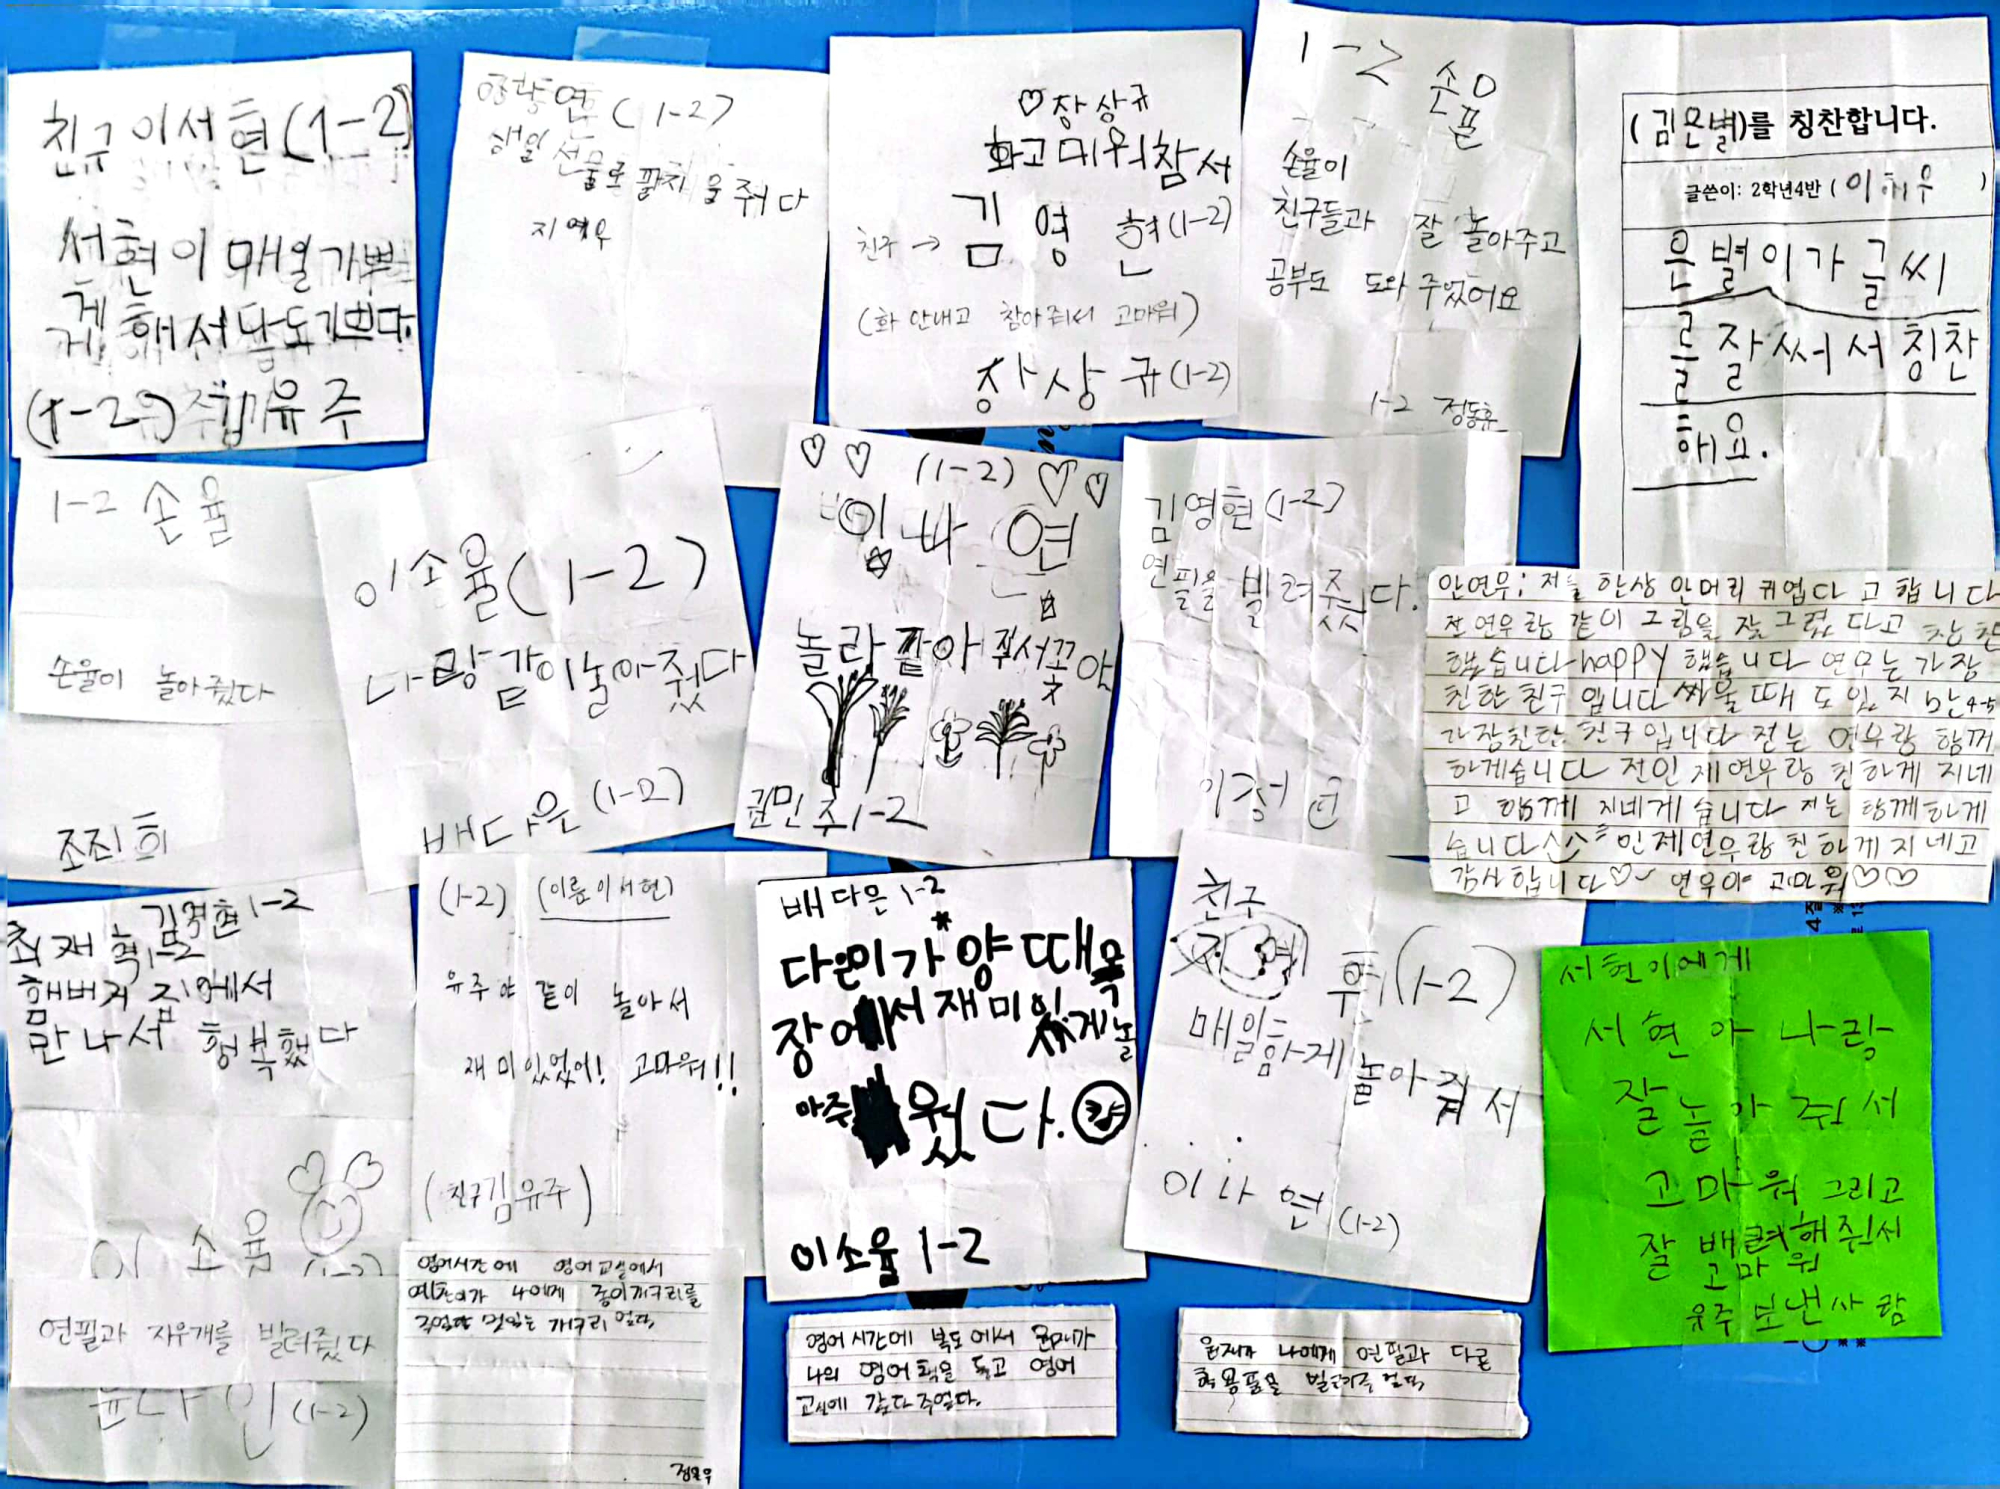 친구 이서현(1-2)
서현이 매일 기쁘
게 해서 나도 기쁘다.
(1-2) 김유주
(1-2)
생일 선물로 팔찌을 줘다
지연우
♡장상규
화고미워참서
김영현(1-2)
친구→
(화 안내고 참아줘서 고마워)
장상규(1-2)
1-2 손율
손율이
친구들과 잘 놀아주고
공부도 도와주었어요
1-2 정동훈
(김은별)를 칭찬합니다.
글쓴이: 2학년4반 ( )
은별이가글씨
를잘써서칭찬
해요.
1-2 손율
손율이 놀아줬다
조진희
이소율(1-2)
나랑같이놀아줬다
배다은(1-2)
(1-2)
이나연
놀라 같아 줘서
권민주1-2
김영현(1-2)
연필을 빌려줬다.
안연우; 저를 항상 안머리 귀엽다 고 합니다
전 연우랑 같이 그림을 잘그렸다고 칭찬
했습니다happy 했습니다 연우는 가장
친한친구 입니다 싸울때 도 있지만
가장친한 친구입니다 저는 연우랑 함께
하게습니다 전인제연우랑 친하게 지네
고 함께 지네게 습니다 저는 함께하게
습니다 인제연우랑 친하게 지네고
감사합니다♡~ 연우야 고마워♡♡
김영현1-2
최재혁1-2
햄버거 집에서
만나서 행복했다
(1-2) (이름이서현)
유주야 같이 놀아서
재미있었어! 고마워!!
(친구김유주)
배다은 1-2
다은이가 양떼목
장에서 재미있게놀
아주웠다.
이소율 1-2
친구
지연우(1-2)
매일함께놀아줘서
이나연(1-2)
서현이에게
서현아 나랑
잘놀아 줘서
고마워 그리고
잘 배려해줘서
고마워
유주 보낸사람
이소율
(1-2)
연필과 지우개를 빌려줬다
윤다인(1-2)
영어시간에 영어교실에서
나에게 종이개구리를
주었다 멋있는 개구리 였다.
영어시간에 복도에서 윤재가
나의 영어책을 들고 영어
교실에 갔다주었다.
윤재가 나에게 연필과 다른
학용품을 빌려주었다